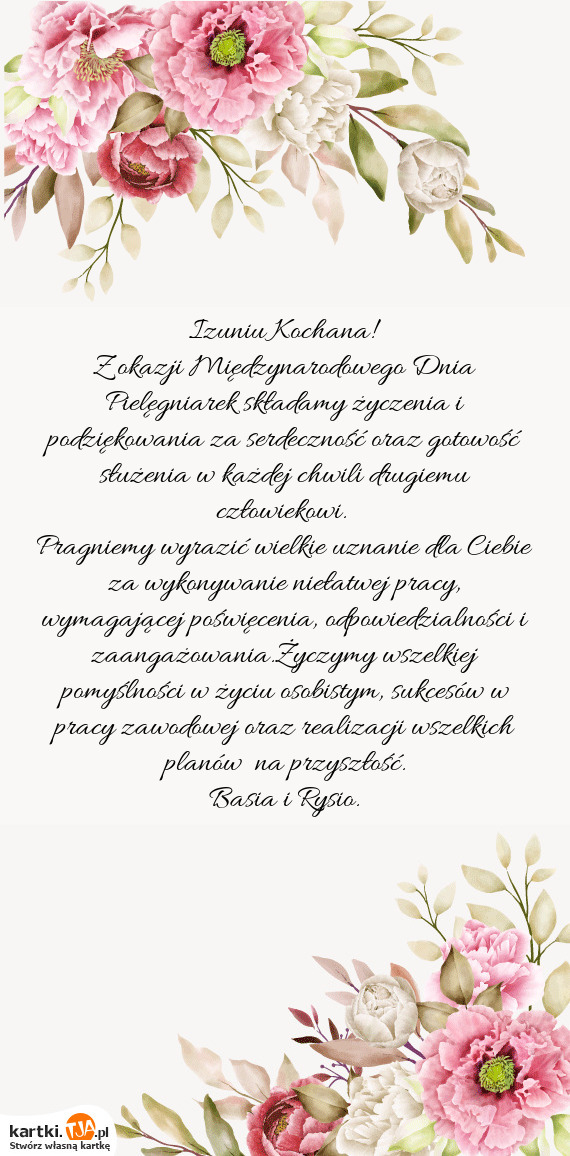 Izuniu Kochana!
Z okazji Międzynarodowego Dnia
Pielęgniarek składamy życzenia i
podziękowania za serdeczność oraz gotowość
służenia w każdej chwili drugiemu
człowiekowi.
Pragniemy wyrazić wielkie uznanie dla Ciebie
za wykonywanie niełatwej pracy,
wymagającej poświęcenia, odpowiedzialności i
zaangażowania.Życzymy wszelkiej
pomyślności w życiu osobistym, sukcesów w
pracy zawodowej oraz realizacji wszelkich
planów  na przyszłość.
Basia i Rysio.
kartki.TJA.pl
Stwórz własną kartkę